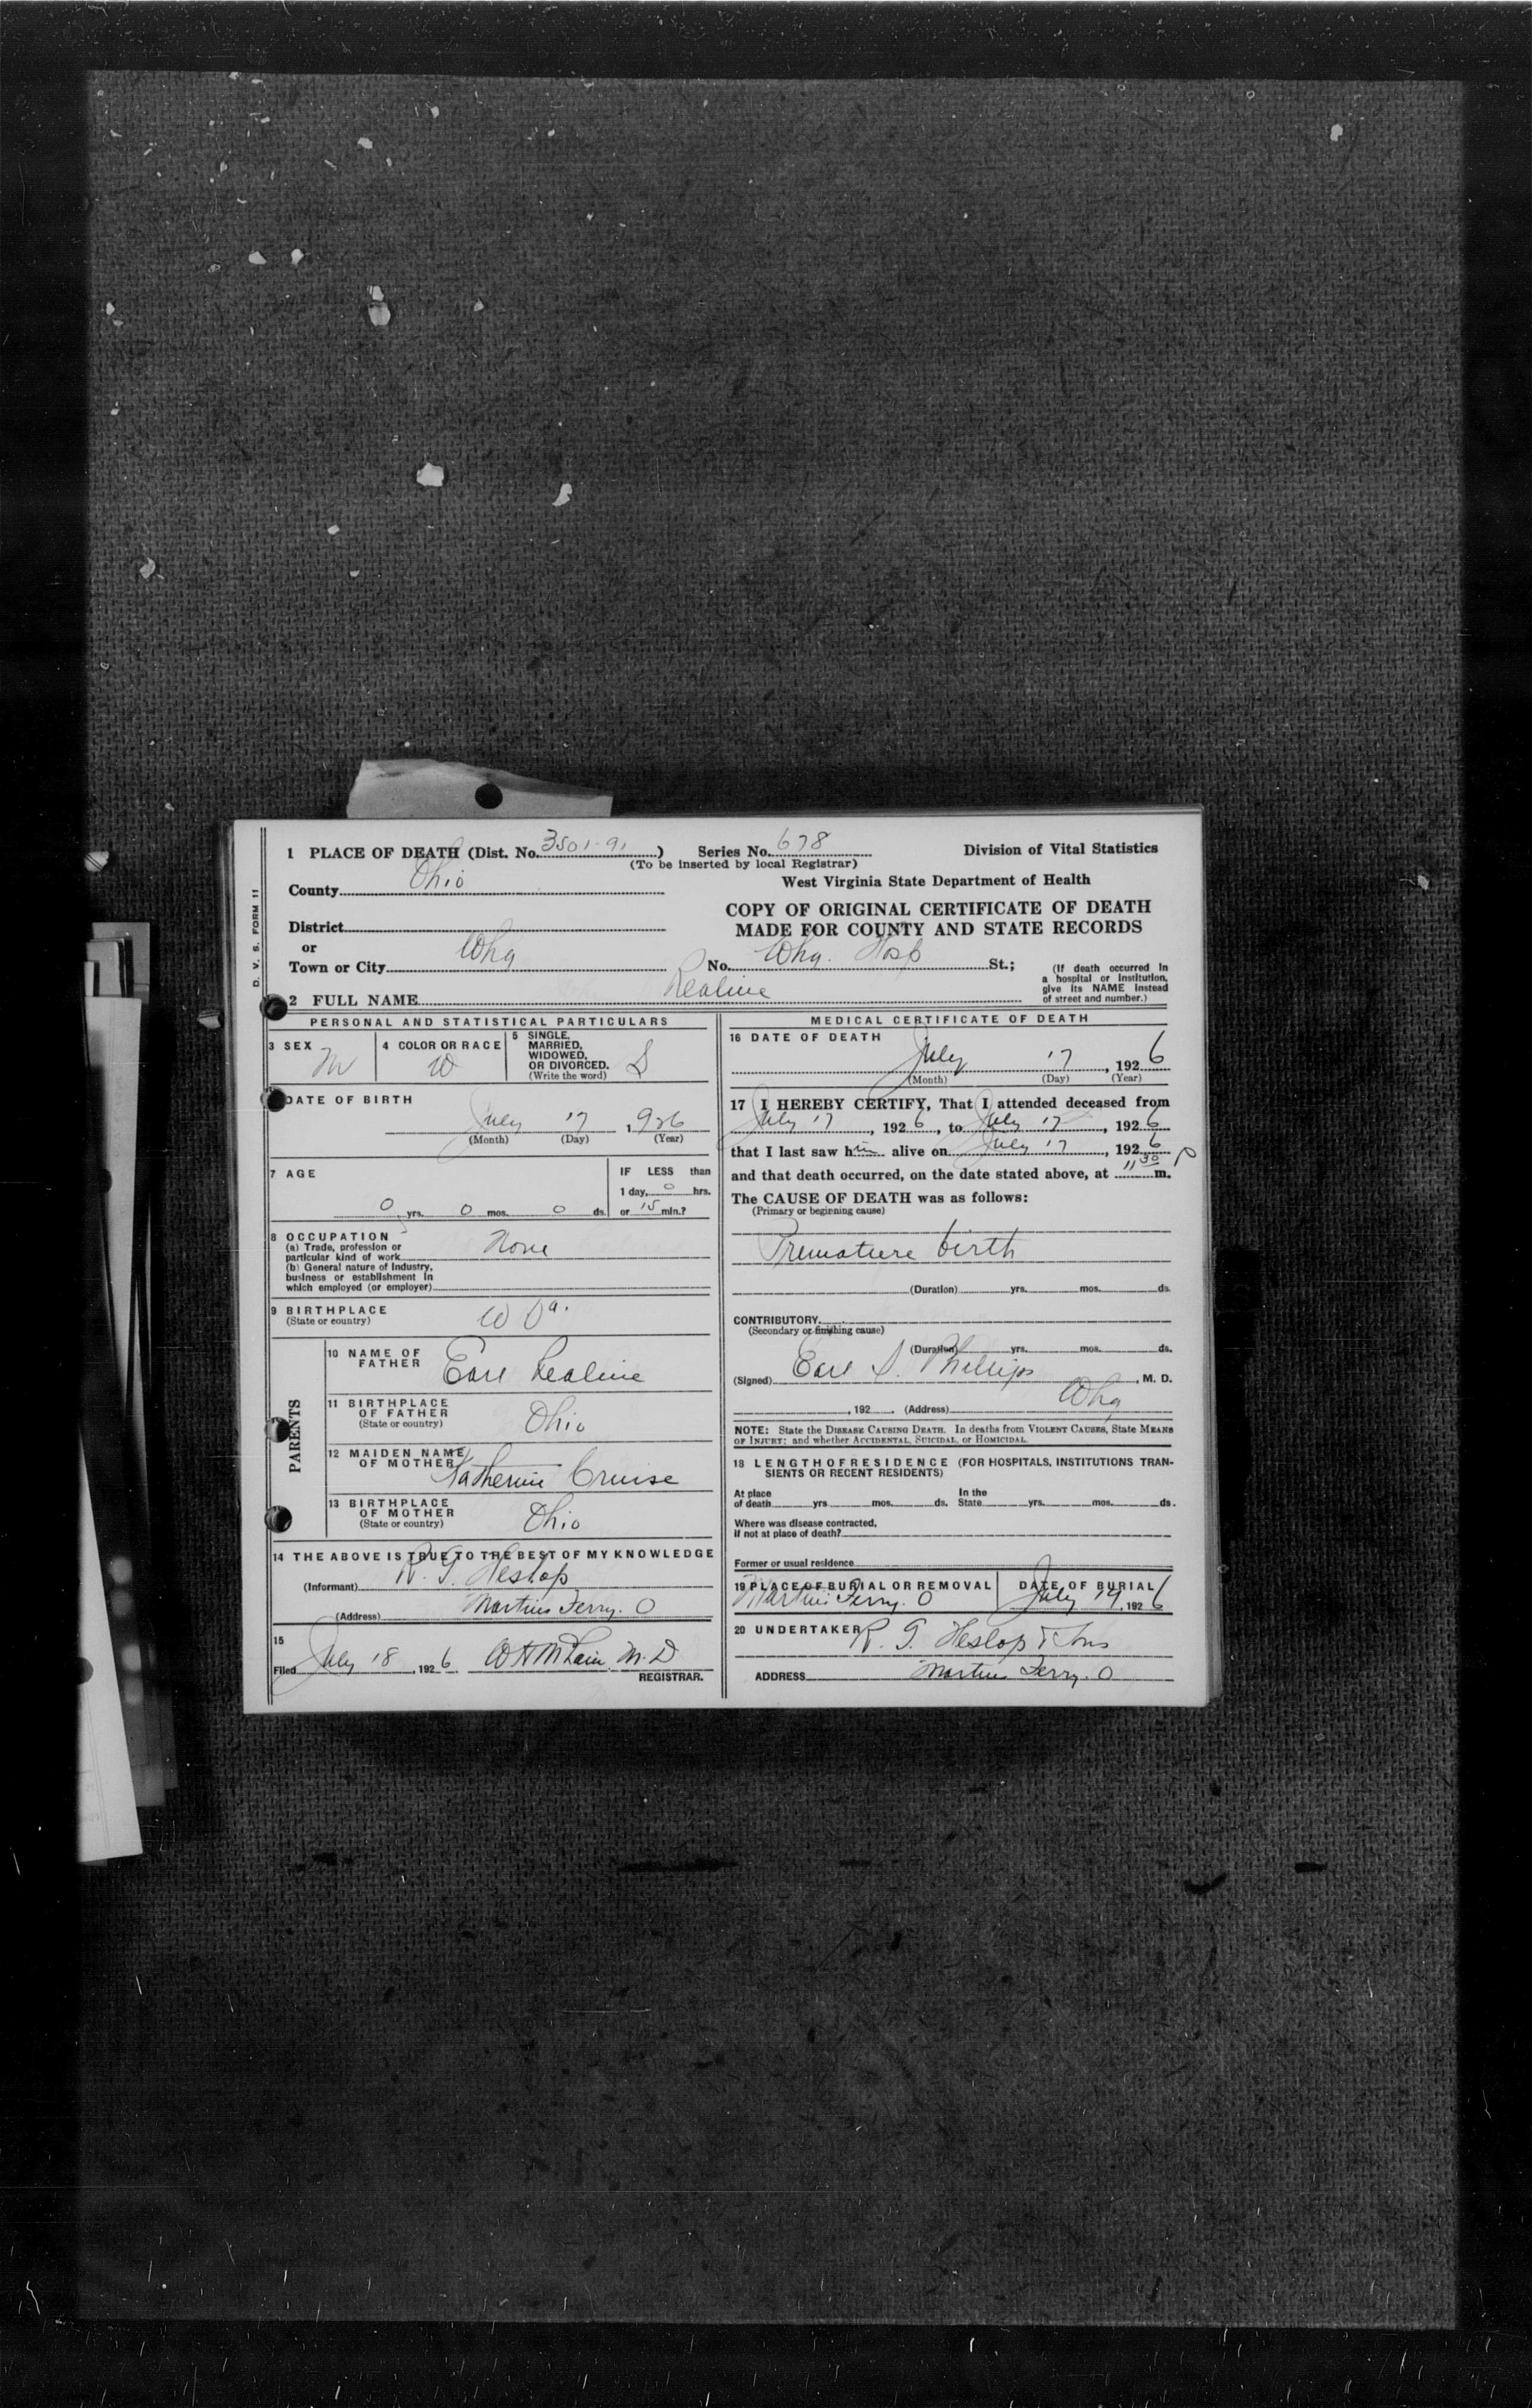 D. V. S. FORM 11
1 PLACE OF DEATH (Dist. No. 3501-91) Series No. 678 Division of Vital Statistics
(To be inserted by local Registrar)
County Ohio West Virginia State Department of Health
COPY OF ORIGINAL CERTIFICATE OF DEATH
MADE FOR COUNTY AND STATE RECORDS
District
or
Town or City Whg No. Whg. Hosp St.;
(If death occurred in a hospital or institution, give its NAME instead of street and number.)
2 FULL NAME Realine
PERSONAL AND STATISTICAL PARTICULARS
3 SEX M
4 COLOR OR RACE W
5 SINGLE, MARRIED, WIDOWED, OR DIVORCED. (Write the word) S
DATE OF BIRTH
July 17, 1926
(Month) (Day) (Year)
7 AGE
0 yrs. 0 mos. 0 ds.
IF LESS than
1 day, 0 hrs.
or 15 min.?
8 OCCUPATION
(a) Trade, profession or
particular kind of work None
(b) General nature of industry,
business or establishment in
which employed (or employer)
9 BIRTHPLACE
(State or country) W Va.
PARENTS
10 NAME OF
FATHER Earl Realine
11 BIRTHPLACE
OF FATHER
(State or country) Ohio
12 MAIDEN NAME
OF MOTHER Katherine Cruise
13 BIRTHPLACE
OF MOTHER
(State or country) Ohio
14 THE ABOVE IS TRUE TO THE BEST OF MY KNOWLEDGE
(Informant) R. G. Heslop
(Address) Martins Ferry. O
15
Filed July 18, 1926 W H McLain, M. D
REGISTRAR.
MEDICAL CERTIFICATE OF DEATH
16 DATE OF DEATH
July 17, 1926
(Month) (Day) (Year)
17 I HEREBY CERTIFY, That I attended deceased from
July 17, 1926, to July 17, 1926
that I last saw him alive on July 17, 1926
and that death occurred, on the date stated above, at 11 30 P m.
The CAUSE OF DEATH was as follows:
(Primary or beginning cause)
Premature birth
(Duration) yrs. mos. ds.
CONTRIBUTORY
(Secondary or finishing cause)
(Duration) yrs. mos. ds.
(Signed) Earl S. Phillips, M. D.
, 192 (Address) Whg
NOTE: State the DISEASE CAUSING DEATH. In deaths from VIOLENT CAUSES, State MEANS
OF INJURY; and whether ACCIDENTAL, SUICIDAL, or HOMICIDAL.
18 LENGTH OF RESIDENCE (FOR HOSPITALS, INSTITUTIONS TRAN-
SIENTS OR RECENT RESIDENTS)
At place In the
of death yrs mos. ds. State yrs. mos. ds.
Where was disease contracted,
if not at place of death?
Former or usual residence
19 PLACE OF BURIAL OR REMOVAL DATE OF BURIAL
Martins Ferry. O July 19, 1926
20 UNDERTAKER R. G. Heslop & Sons
ADDRESS Martins Ferry. O